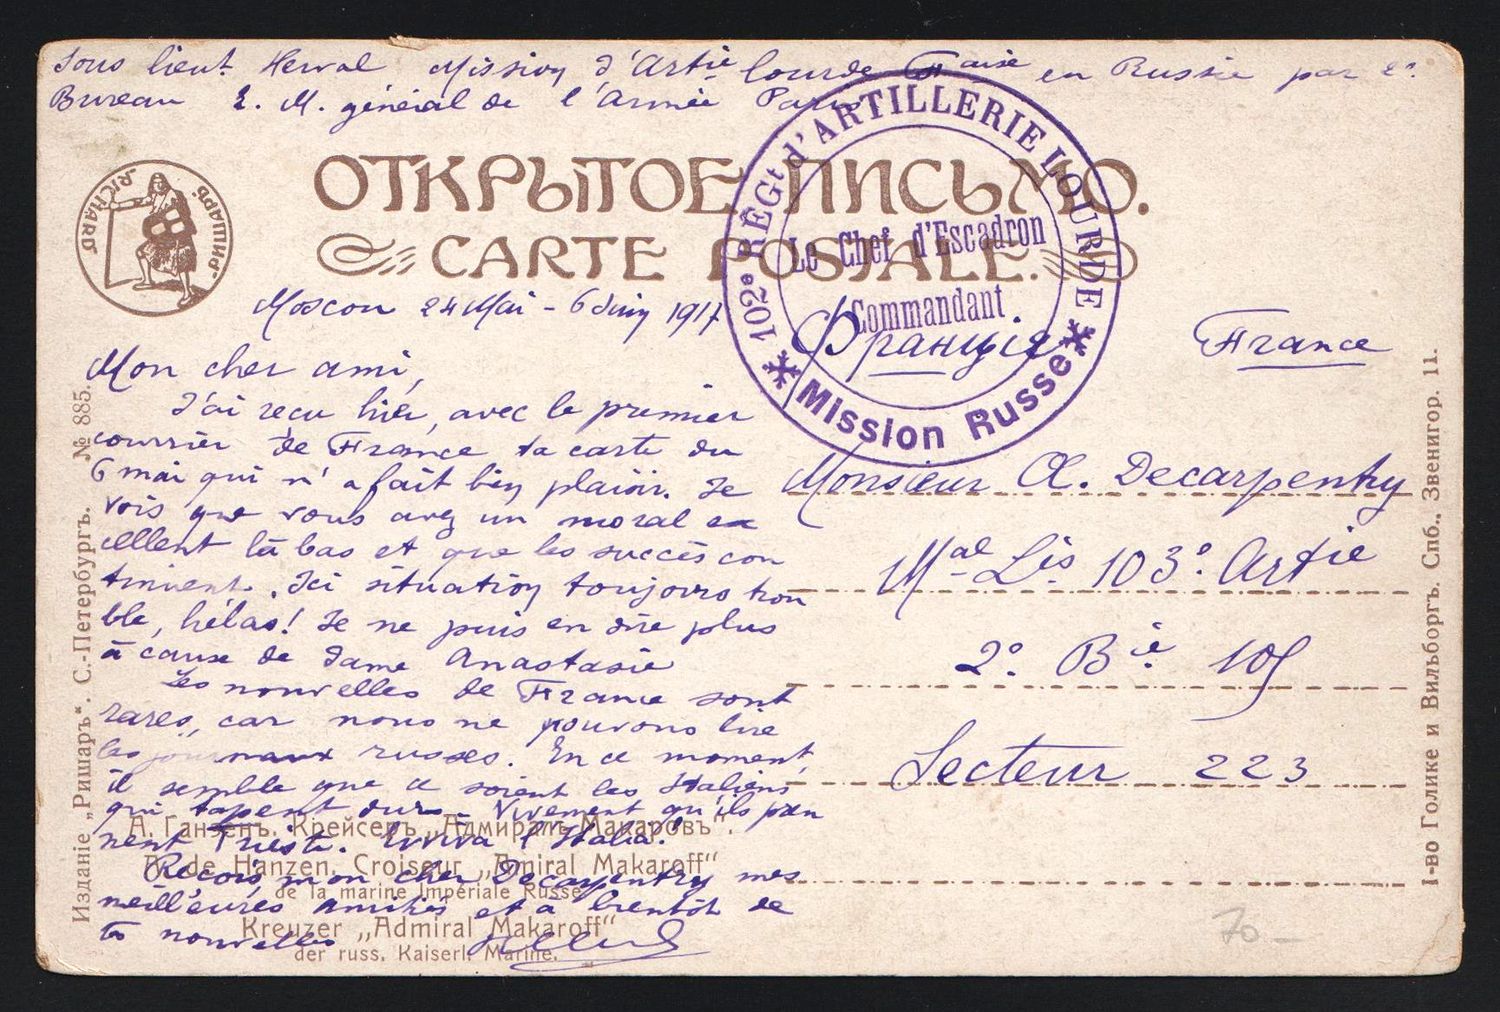 Sous lieut Herval Mission d'Artie lourde Fçaise en Russie par 2e
Bureau E. M. général de l'Armée Paris
"RICHARD" "РИШАРЪ"
ОТКРЫТОЕ ПИСЬМО.
CARTE POSTALE.
102e RÉGt d'ARTILLERIE LOURDE
Le Chef d'Escadron
Commandant
Mission Russe
Moscou 24 Mai - 6 Juin 1917
Франція France
Mon cher ami,
J'ai reçu hier, avec le premier
courrier de France ta carte du
6 mai qui m'a fait bien plaisir. Je
vois que vous avez un moral ex
cellent là bas et que les succès con
tinuent. Ici situation toujours trou
ble, hélas! Je ne puis en dire plus
à cause de dame Anastasie
Les nouvelles de France sont
rares, car nous ne pouvons lire
les journaux russes. En ce moment,
il semble que ce soient les Italiens
qui tapent dur. Vivement qu'ils pren
nent Trieste. Evviva l'Italia!
Reçois mon cher Decarpentry mes
meilleures amitiés et à bientôt de
tes nouvelles
Monsieur A. Decarpentry
Mal Lis 103e Artie
2e Bie 105
Secteur 223
А. Ганзенъ. Крейсеръ „Адмиралъ Макаровъ“.
A. de Hanzen. Croiseur „Amiral Makaroff“
de la marine Impériale Russe
Kreuzer „Admiral Makaroff“
der russ. Kaiserl. Marine.
Изданіе „Ришаръ“. С.-Петербургъ. № 885.
Т-во Голике и Вильборгъ. Спб., Звенигор. 11.
70 –